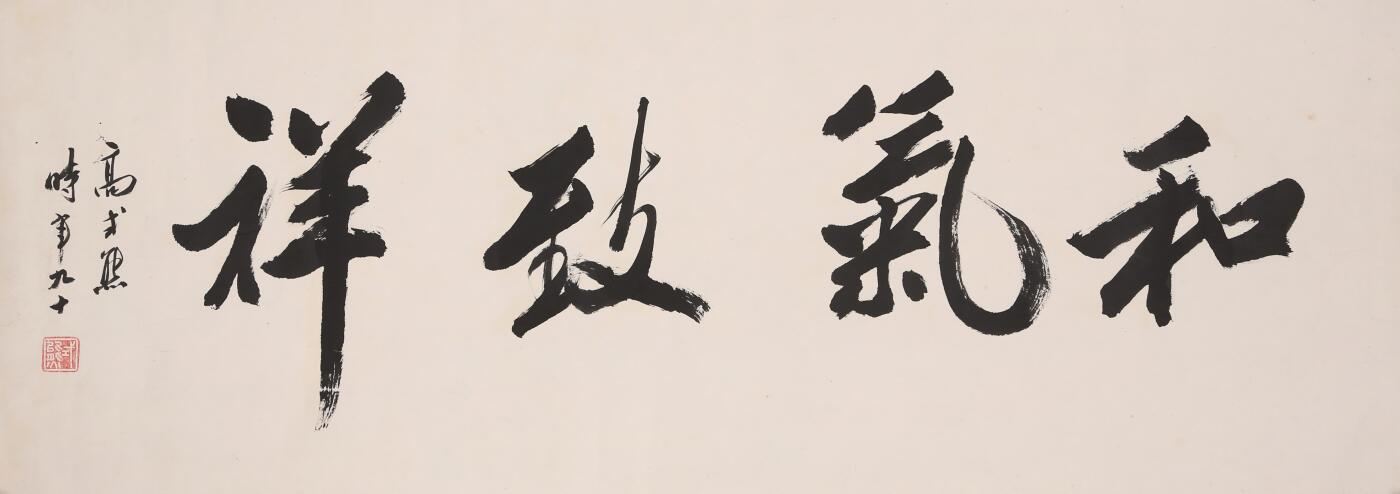 和氣致祥
高式熊
時年九十
式熊